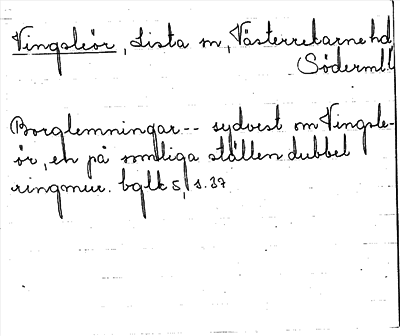 Vingsleör, Lista sn, Västerrekarne hd
(Söderml.)
Borglemningar -- sydvest om Vingsle-
ör, en på somliga ställen dubbel
ringmur. bgllt 5, s. 37